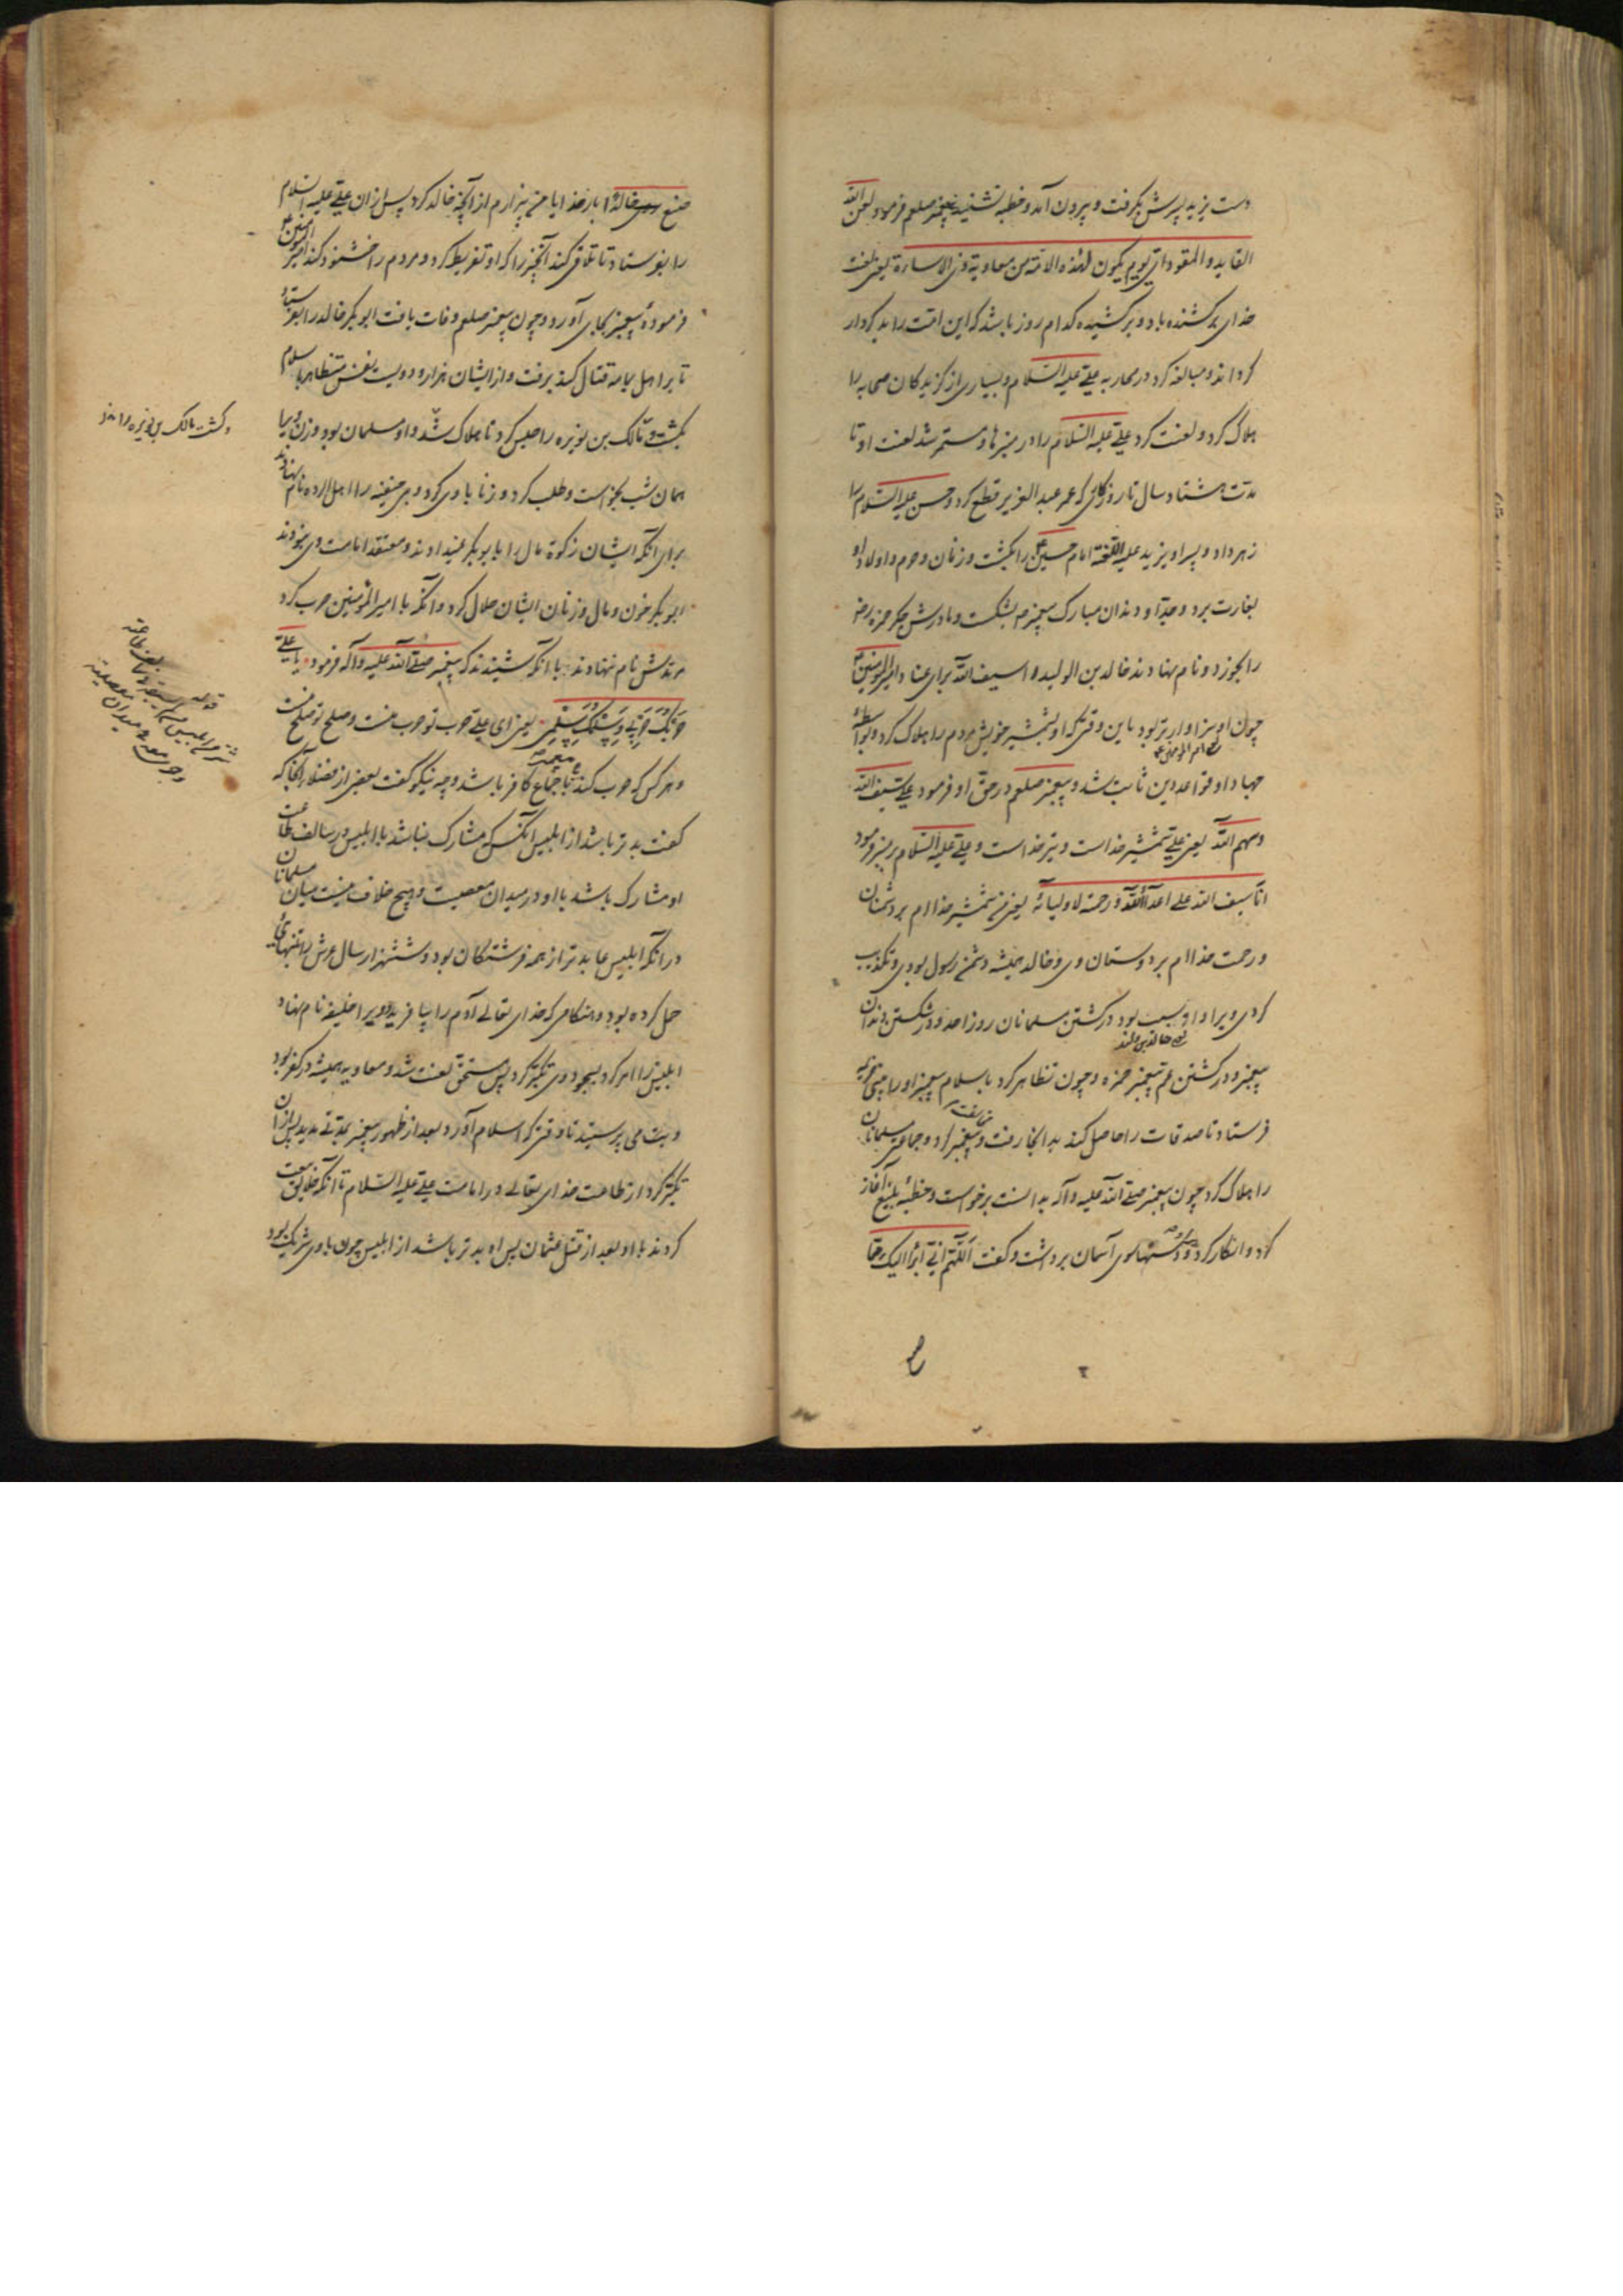 دست یزید پسرش بگرفت و بیرون آمد و خطبه نشنید پیغمبر صلعم فرمود لعن الله
القاید و المقود ای یوم یکون لهذه الامة من معاویة ذی الاساءة یعنی لعنت
خدای بر کشنده باد و بر کشیده کدام روز باشد که این امت را بد کردار
کرداند و مبالغه کرد در محاربه علی علیه السلام و بسیاری از گزیدکان صحابه را
هلاک کرد و لعنت کرد علی علیه السلام را در منبرها و مستمر شد لعنت او تا
مدت هشتاد سال تا روزگاری که عمر عبد العزیز قطع کرد و حسن علیه السلام را
زهر داد و پسر او یزید علیه اللعنة امام حسین را بکشت و زنان و حرم و اولاد او
بغارت برد و جد او دندان مبارک پیغمبر بشکست و مادرش جگر حمزه
را بخورد و نام نهادند خالد بن الولید را سیف الله برای عناد امیر المؤمنین
چون او سزاوارتر بود باین وقتی که او بشمشیر خویش مردم را هلاک کرد و بواسطۀ
جهاد او قواعد دین ثابت شد و پیغمبر صلعم در حق او فرمود علی سیف الله
و سهم الله یعنی علی شمشیر خداست و تیر خداست و علی علیه السلام بر منبر فرمود
انا سیف الله علی اعداء الله و رحمة لاولیائه یعنی من شمشیر خداام بر دشمنان
و رحمت خداام بر دوستان وی و خالد همیشه دشمن رسول بودی و تکذیب
کردی ویرا و او سبب بود در کشتن مسلمانان روز احد و در شکستن دندان
پیغمبر و در کشتن عم پیغمبر حمزه و چون تظاهر کرد باسلام پیغمبر او را ببنی جذیمه
فرستاد تا صدقات را حاصل کند بد انجا رفت و مخالفت پیغمبر کرد و جماعتی مسلمانان
را هلاک کرد چون پیغمبر صلی الله علیه و آله بدانست برخواست و خطبۀ بلیغ آغاز
کرد و انکار کرد و دستها سوی آسمان برداشت و گفت اللهم انی ابرأ الیک مما
صنع خالد بار خدایا من بیزارم از آنچه خالد کرد پس از ان علی علیه السلام
را بفرستاد تا تلافی کند آنچیز را که او تفریط کرد و مردم را خشنود کند امیر المؤمنین
فرمودۀ پیغمبر بجای آورد و چون پیغمبر صلعم وفات یافت ابو بکر خالد را بفرستاد
تا بر اهل یمامه قتال کند برفت و از ایشان هزار و دویست نفس متظاهر باسلام
بکشت و مالک بن نویره را حبس کرد تا هلاک شد و او مسلمان بود و زن ویرا
همان شب بخواست و طلب کرد و زنا با وی کرد و بنی حنیفه را اهل الرده نام نهادند
برای انکه ایشان زکوة مال را بابو بکر نمیدادند و معتقد امامت وی نبودند
ابو بکر خون و مال و زنان ایشان حلال کرد و انکه با امیر المؤمنین حرب کرد
مرتدش نام ننهادند با انکه شنیدند که پیغمبر صلی الله علیه و آله فرمود یا علی
حربک حربی و سلمک سلمی یعنی ای علی حرب تو حرب منست و صلح تو صلح منست
و هر کس که حرب کند با پیغمبر باجماع کافر باشد و چه نیکو گفت بعضی از فضلا آنجا که
گفت بدتر باشد از ابلیس آنکس که مشارک نباشد با ابلیس در سالف طاعت
او مشارک باشد با او در میدان معصیت و هیچ خلاف نیست میان مسلمانان
در انکه ابلیس عابدتر از همه فرشتگان بود و شش هزار سال عرش را بتنهائی
حمل کرده بود و هنگامی که خدای تعالی آدم را بیافرید و ویرا خلیفه نام نهاد
ابلیس را امر کرد بسجود وی تکبر کرد پس مستحق لعنت شد و معاویه همیشه در کفر بود
و بت می پرستید تا وقتی که اسلام آورد بعد از ظهور پیغمبر بمدتی مدید پس از ان
تکبر کرد از طاعت خدای تعالی در امامت علی علیه السلام تا انکه خلایق بیعت
کردند با او بعد از قتل عثمان پس او بدتر باشد از ابلیس چون با وی شریک بود
و کشت مالک بن نویره را